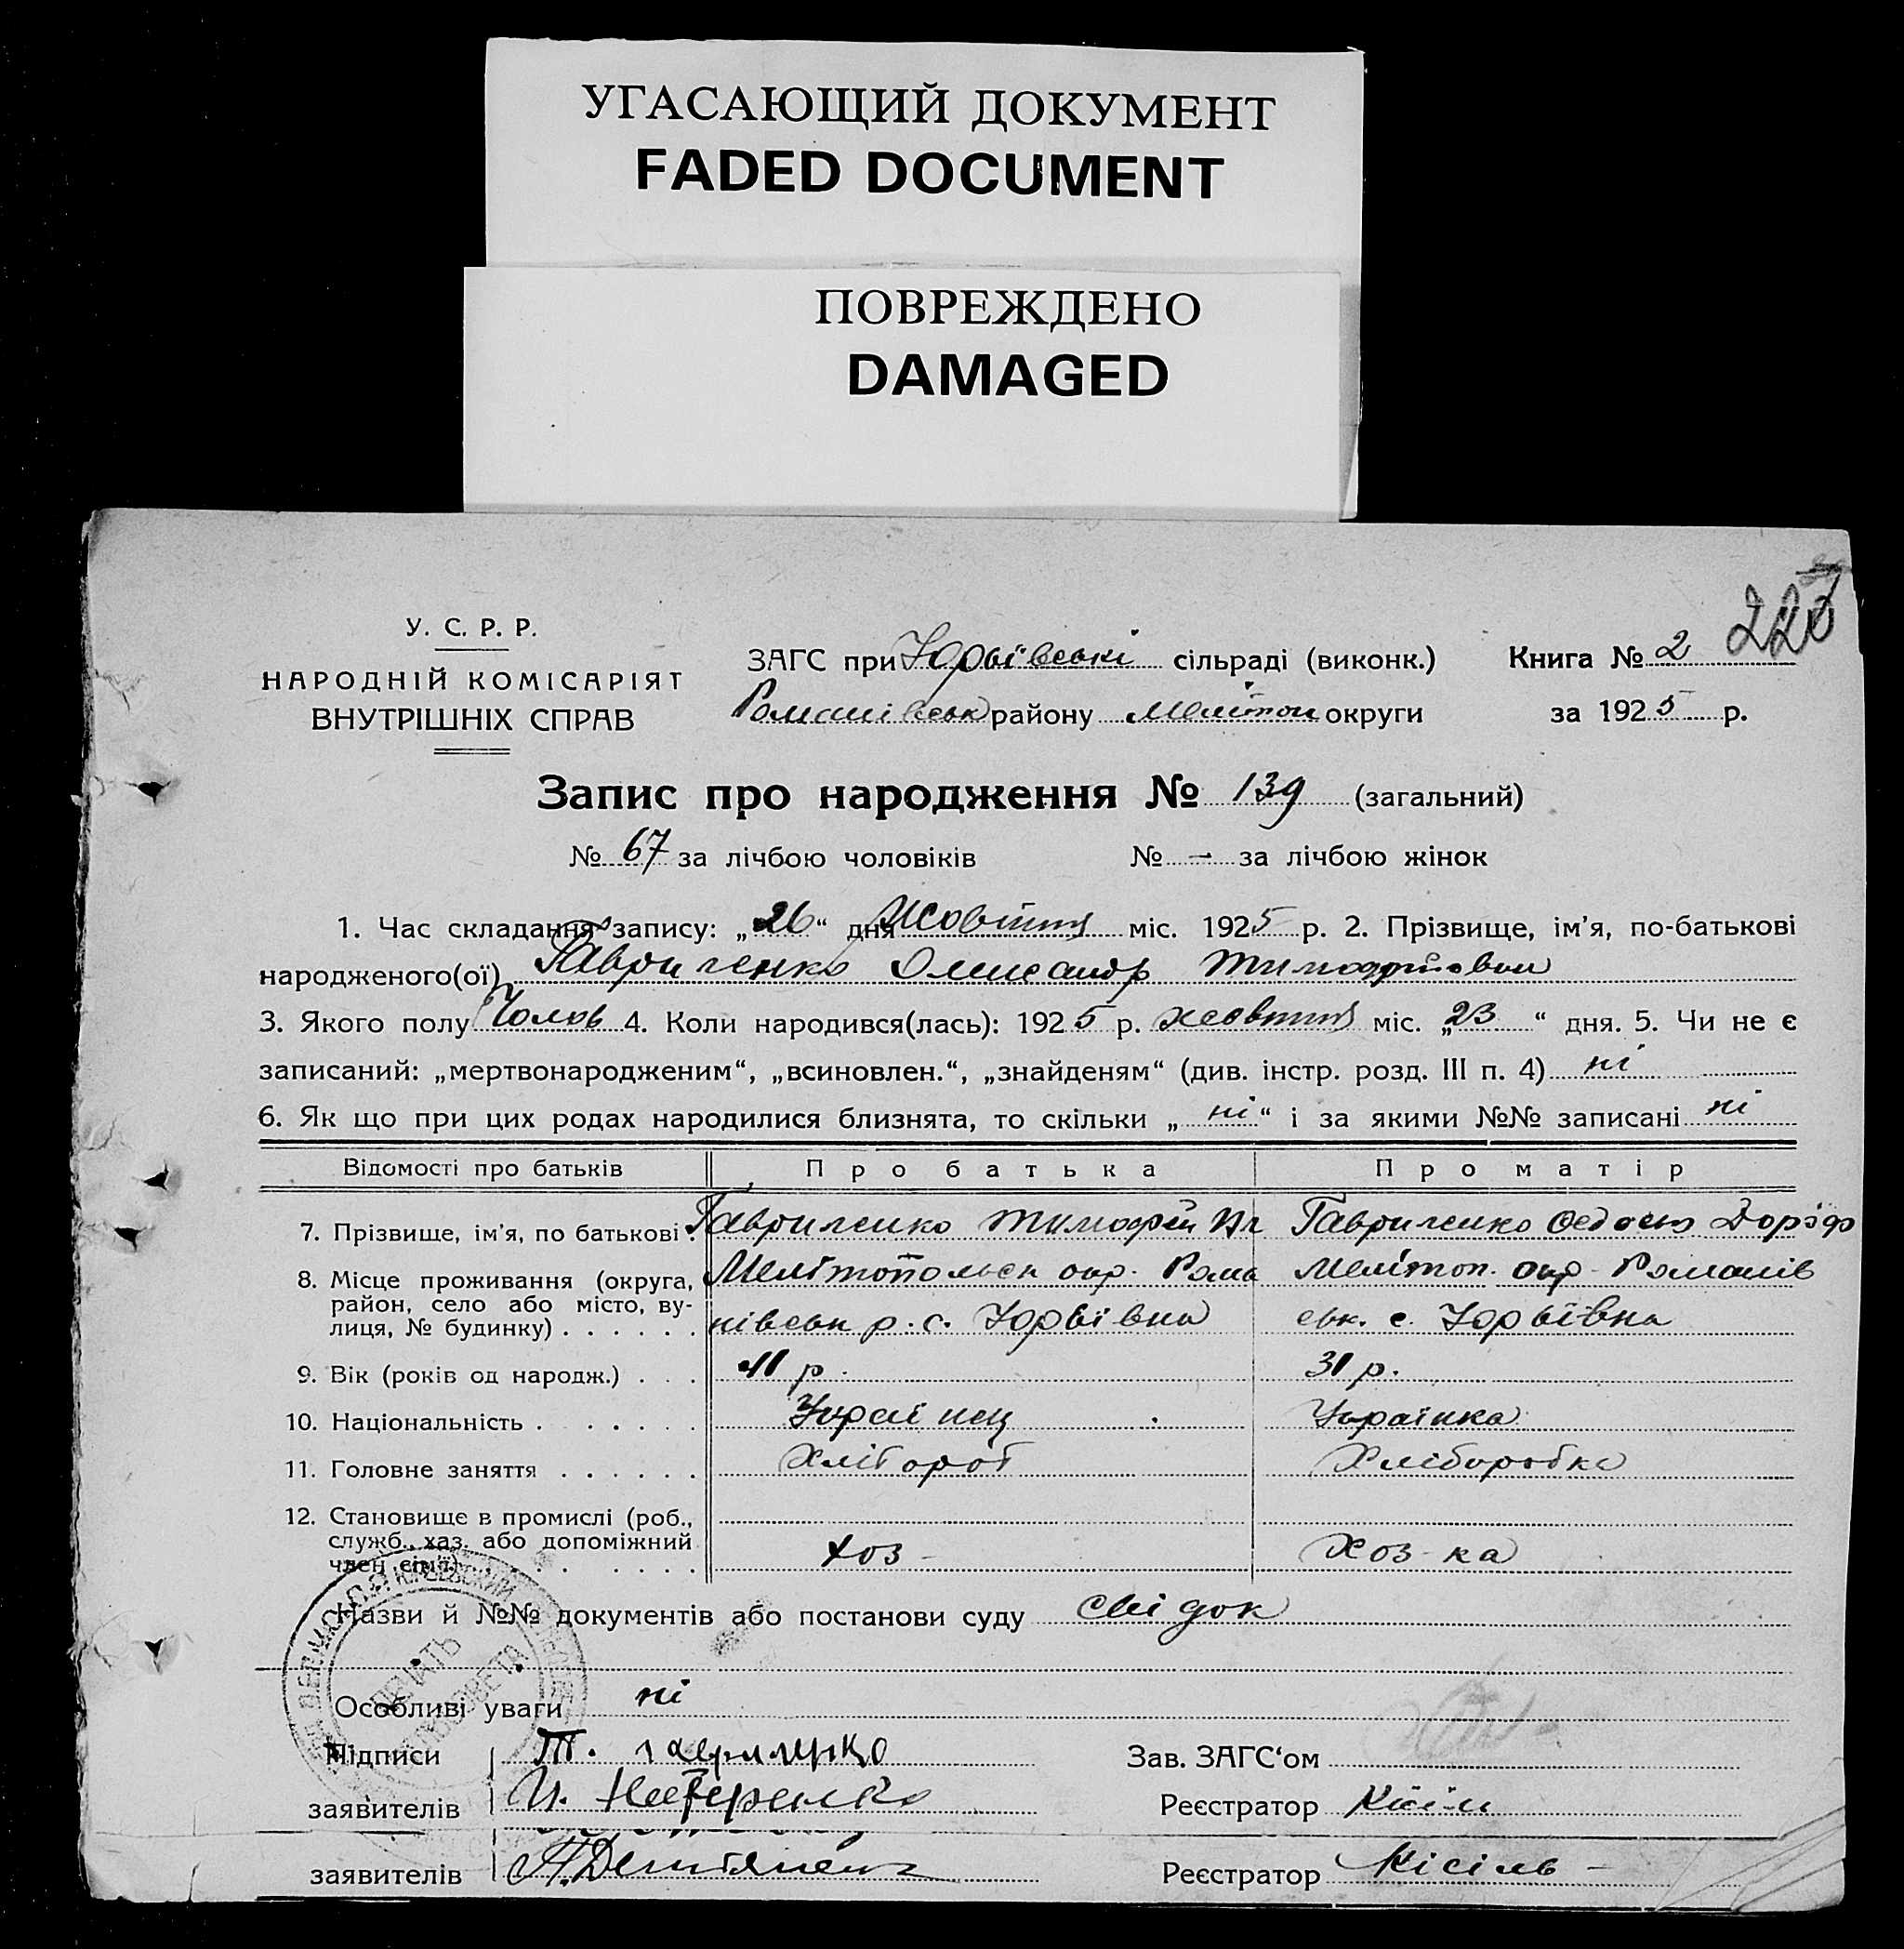 УГАСАЮЩИЙ ДОКУМЕНТ
FADED DOCUMENT
ПОВРЕЖДЕНО
DAMAGED
У. С. Р. Р.
НАРОДНІЙ КОМІСАРІЯТ
ВНУТРІШНІХ СПРАВ
ЗАГС при Юрьївські сільраді (виконк.)
Романівськ району Меліton округи
Книга № 2
за 1925 р.
Запис про народження № 139 (загальний)
№ 67 за лічбою чоловіків № — за лічбою жінок
1. Час складання запису: „26“ дня Жовтня міс. 1925 р. 2. Прізвище, ім’я, по-батькові
народженого(ої) Гавриленко Олександр Тимофійович
3. Якого полу Чолов 4. Коли народився(лась): 1925 р. жовтня міс. „23“ дня. 5. Чи не є
записаний: „мертвонародженим“, „всиновлен.“, „знайденям“ (див. інстр. розд. III п. 4) ні
6. Як що при цих родах народилися близнята, то скільки „ні“ і за якими №№ записані ні
Відомості про батьків Про батька Про матір
7. Прізвище, ім’я, по батькові. Гавриленко Тимофій Гавриленко Федося
8. Місце проживання (округа, Мелітопольск окр. Рома Мелітоп. окр. Романів
район, село або місто, ву-
лиця, № будинку) . . . . . . нівськ р. с. Юрьївка ськ. с. Юрьївка
9. Вік (років од народж.) . . . р. 31 р.
10. Національність . . . . . . Українец Українка
11. Головне заняття . . . . . . Хлібороб Хліборобка
12. Становище в промислі (роб.,
служб., хаз. або допоміжний
член сім’ї) . . . . . . хоз - Хоз-ка
Назви й №№ документів або постанови суду свідок
ПЕЧАТЬ
Особливі уваги ні
Підписи Т. гавриленко Зав. ЗАГС‘ом
заявителів И. Нестеренко Реєстратор Кісіль
заявителів Реєстратор Кісіль -